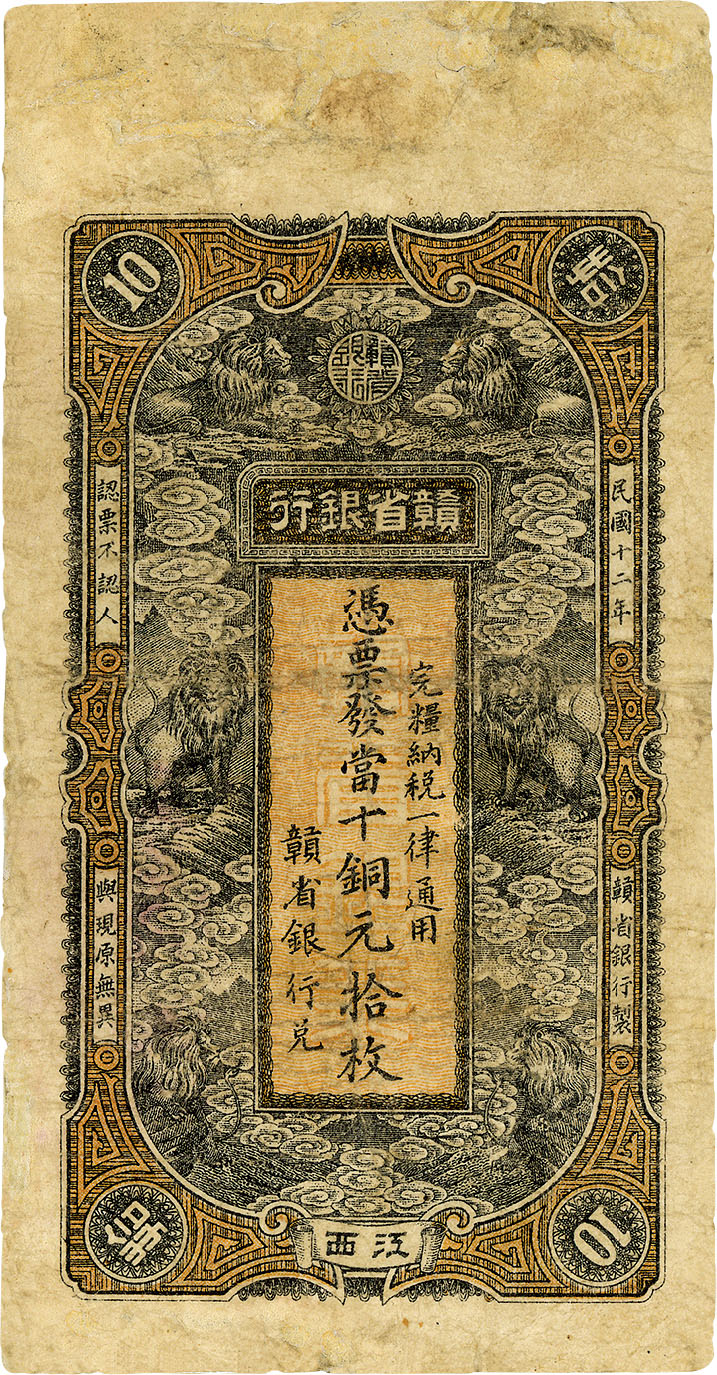 10
贛省銀行
贛省銀行
民國十二年
贛省銀行製
完糧納税一律通用
憑票發當十銅元拾枚
贛省銀行兑
認票不認人
與現原無異
江西
10